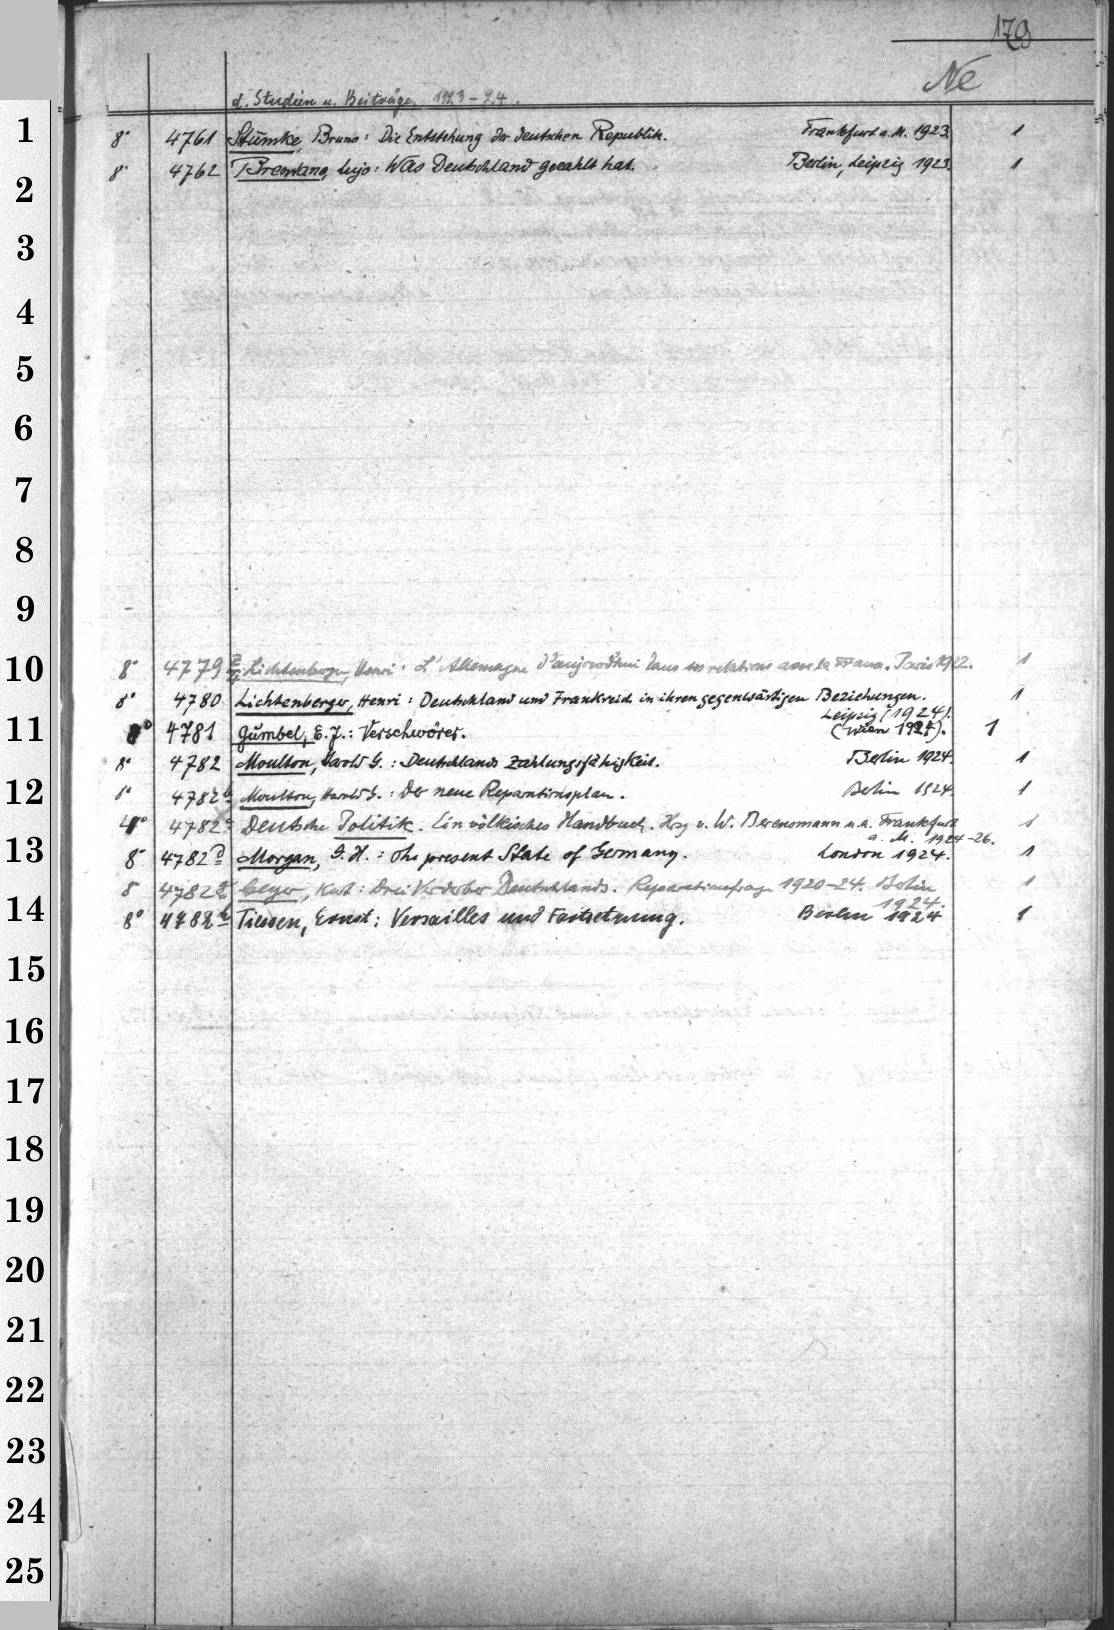 179
Ne
d. Studien u. Beiträge. 1923-24.
1
8° 4761 Stümke, Bruno: Die Entstehung der deutschen Republik. Frankfurt a. M. 1923. 1
8° 4762 Brentano, Lujo: Was Deutschland gezahlt hat. Berlin, Leipzig 1923. 1
2
3
4
5
6
7
8
9
10
8° 4779 Lichtenberger, Henri: L'Allemagne d'aujourd'hui dans ses relations avec la France. Paris 1922. 1
8° 4780 Lichtenberger, Henri: Deutschland und Frankreich in ihren gegenwärtigen Beziehungen. 1
Leipzig (1924).
11
8° 4781 Gumbel, E. J.: Verschwörer. (Wien 1924). 1
8° 4782 Moulton, Harold G.: Deutschlands Zahlungsfähigkeit. Berlin 1924. 1
12
8° 4782 b Moulton, Harold G.: Der neue Reparationsplan. Berlin 1924. 1
4° 4782 c Deutsche Politik. Ein völkisches Handbuch. Hrsg v. W. Berensmann u.a. Frankfurt 1
a. M. 1924-26.
13
8° 4782 d Morgan, J. H.: The present State of Germany. London 1924. 1
8° 4782 Geyer, Kurt: Drei Verderber Deutschlands. Reparationsfrage 1920-24. Berlin 1
1924.
14
8° 4782 Tiessen, Ernst: Versailles und Fortsetzung. Berlin 1924 1
15
16
17
18
19
20
21
22
23
24
25